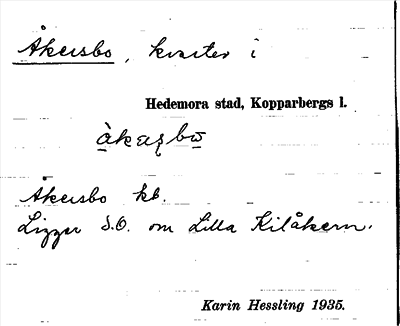 Åkersbo, kvarter i
Hedemora stad, Kopparbergs l.
Åkersbo kb.
Ligger S.O. om Lilla Kilåkern.
Karin Hessling 1935.